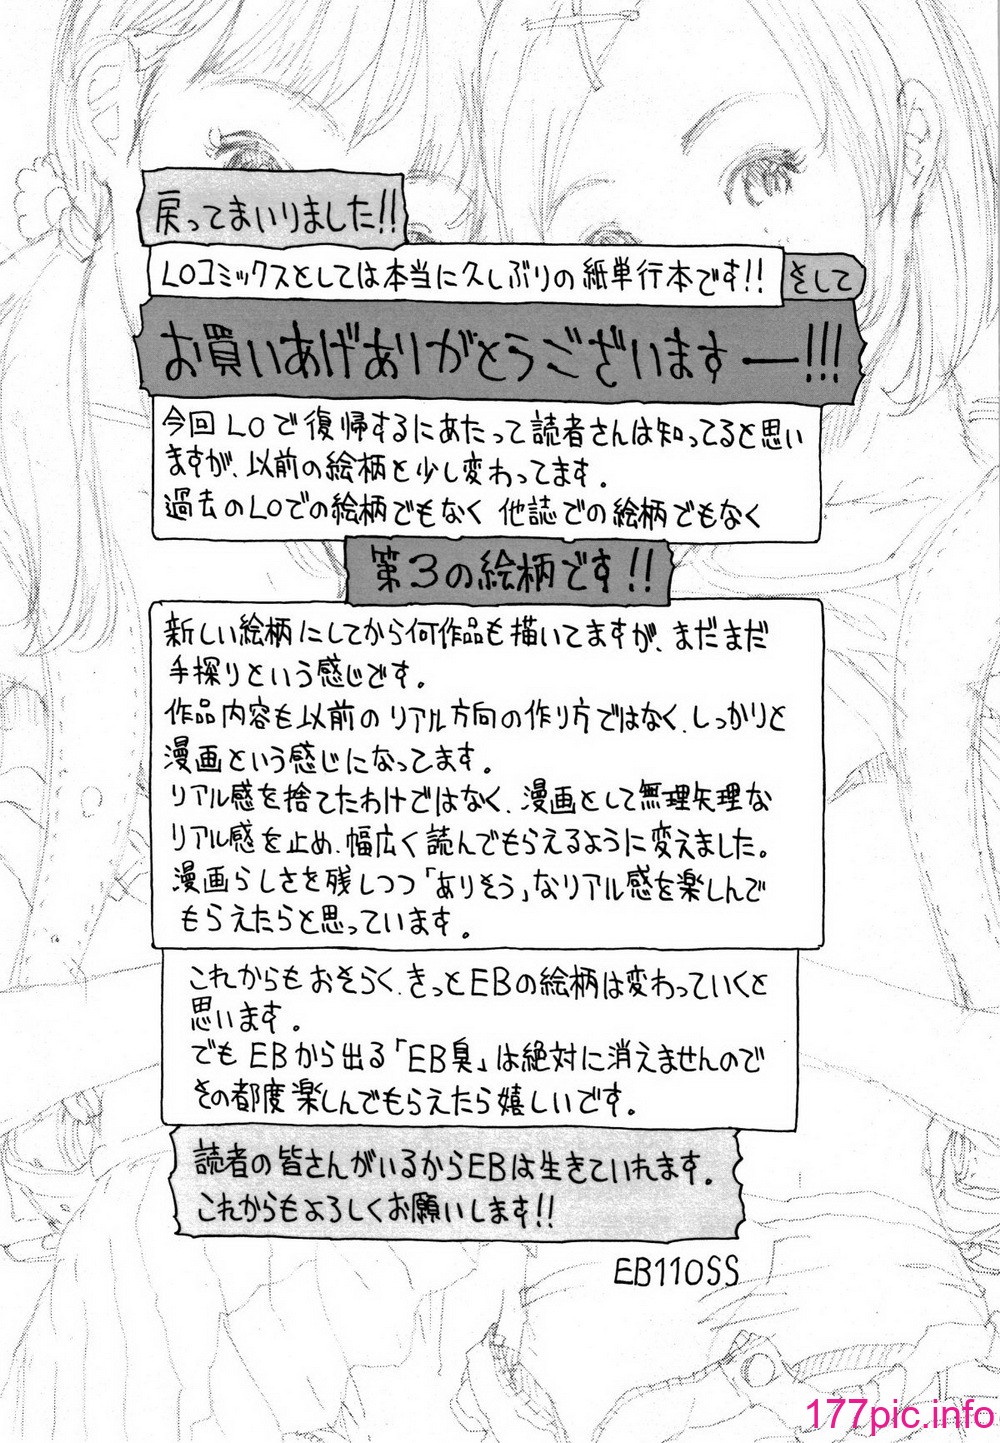 戻ってまいりました!!
LOコミックスとしては本当に久しぶりの紙単行本です!!
そして
お買いあげありがとうございますー!!!
今回LOで復帰するにあたって読者さんは知ってると思い
ますが、以前の絵柄と少し変わってます。
過去のLOでの絵柄でもなく他誌での絵柄でもなく
第3の絵柄です!!
新しい絵柄にしてから何作品も描いてますが、まだまだ
手探りという感じです。
作品内容も以前のリアル方向の作り方ではなく、しっかりと
漫画という感じになってます。
リアル感を捨てたわけではなく、漫画として無理矢理な
リアル感を止め、幅広く読んでもらえるように変えました。
漫画らしさを残しつつ「ありそう」なリアル感を楽しんで
もらえたらと思っています。
これからもおそらく、きっとEBの絵柄は変わっていくと
思います。
でもEBから出る「EB臭」は絶対に消えませんので
その都度楽しんでもらえたら嬉しいです。
読者の皆さんがいるからEBは生きていれます。
これからもよろしくお願いします!!
EB110SS
177pic.info